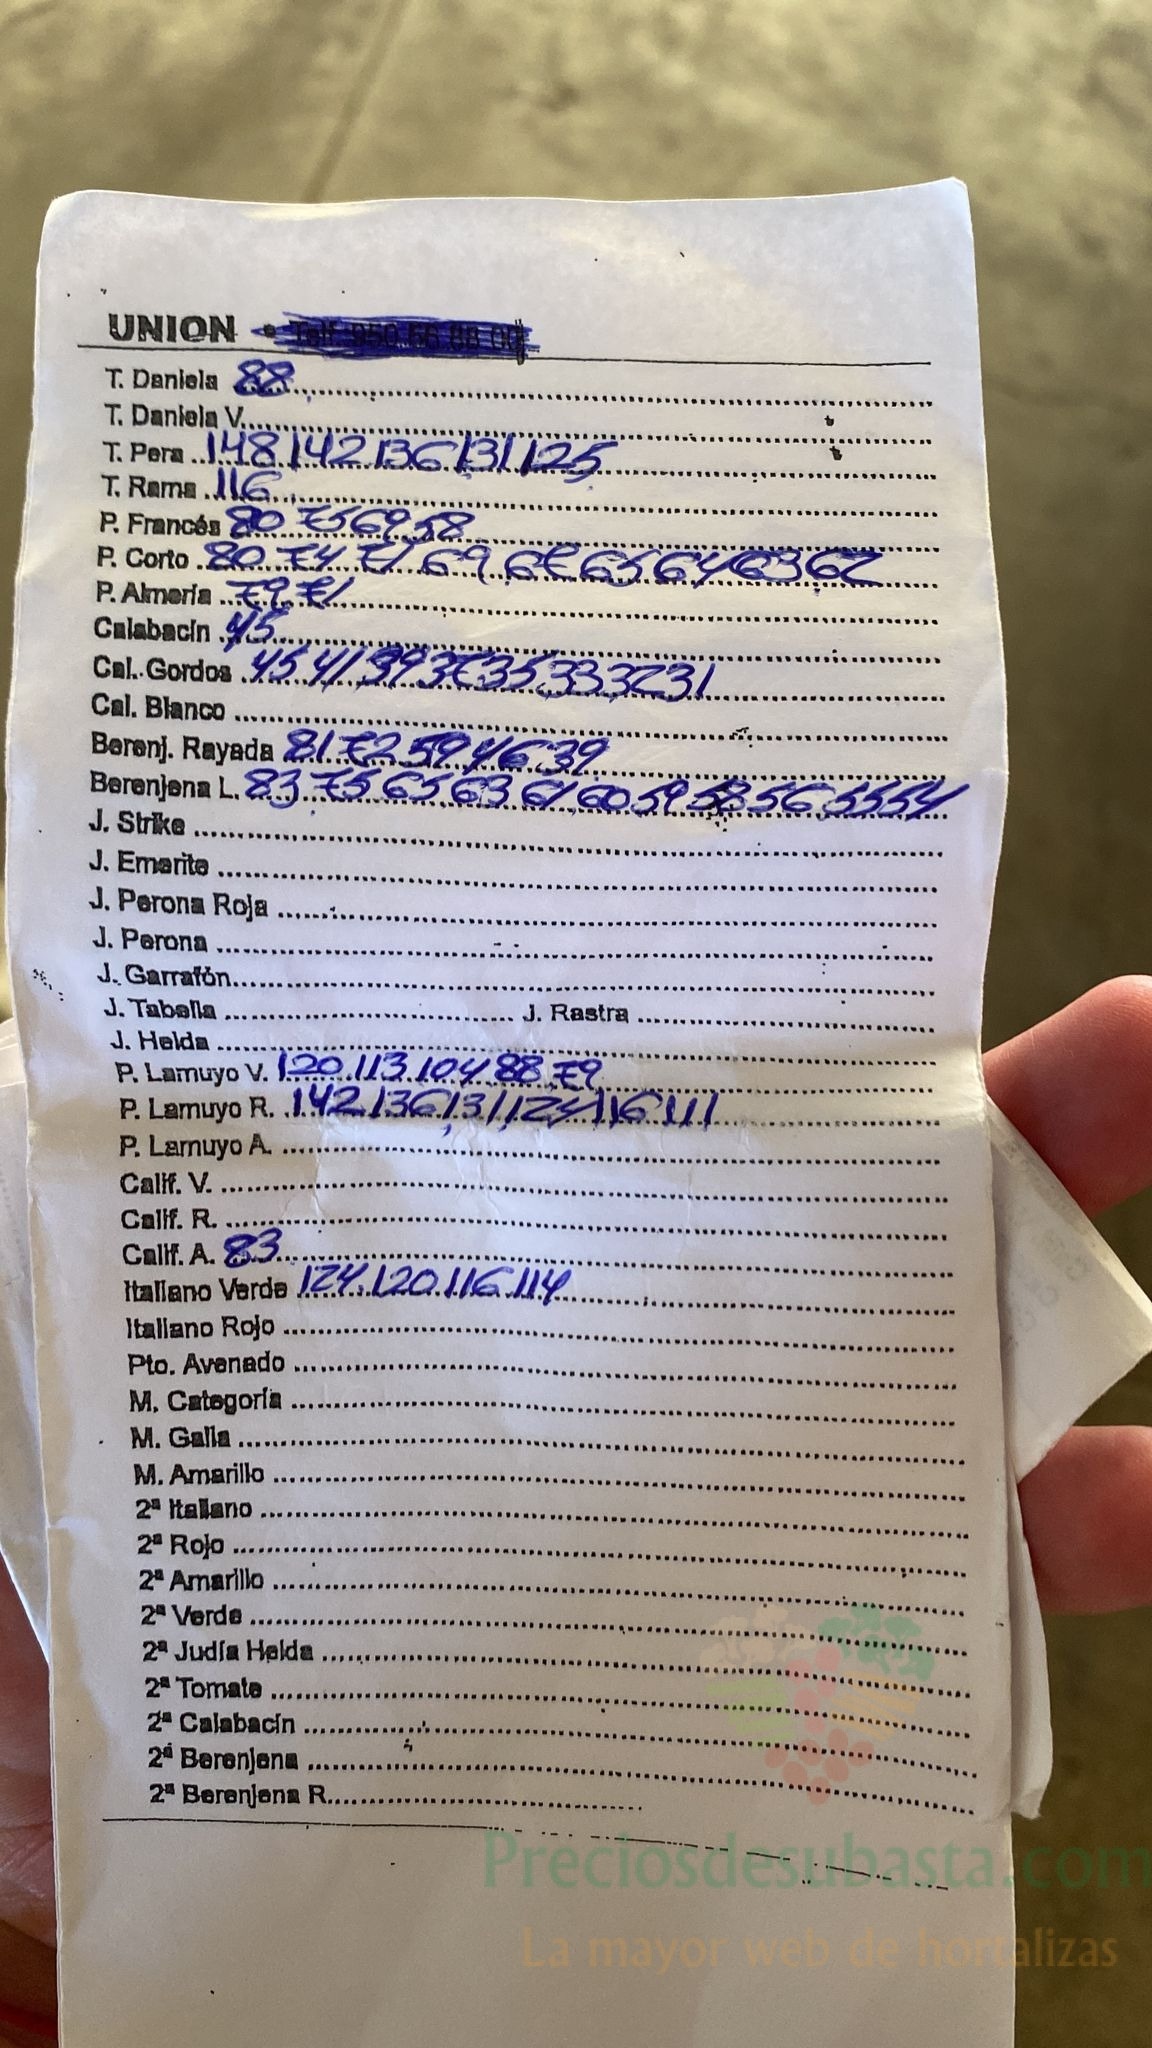 UNION
T. Daniela 88
T. Daniela V.
T. Pera 148 142 136 131 125
T. Rama 116
P. Francés 80 75 69 58
P. Corto 80 74 71 69 67 65 64 63 62
P. Almería 79 71
Calabacín 45
Cal. Gordos 45 41 39 37 35 33 32 31
Cal. Blanco
Berenj. Rayada 81 72 59 46 39
Berenjena L. 83 75 65 63 61 60 59 58 56 55 54
J. Strike
J. Emerite
J. Perona Roja
J. Perona
J. Garrafón
J. Tabella J. Rastra
J. Helda
P. Lamuyo V. 120 113 104 88 79
P. Lamuyo R. 142 136 131 124 116 111
P. Lamuyo A.
Calif. V.
Calif. R.
Calif. A. 83
Italiano Verde 124 120 116 114
Italiano Rojo
Pto. Avenado
M. Categoría
M. Galia
M. Amarillo
2ª Italiano
2ª Rojo
2ª Amarillo
2ª Verde
2ª Judía Helda
2ª Tomate
2ª Calabacín
2ª Berenjena
2ª Berenjena R.
Preciosdesubasta.com
La mayor web de hortalizas